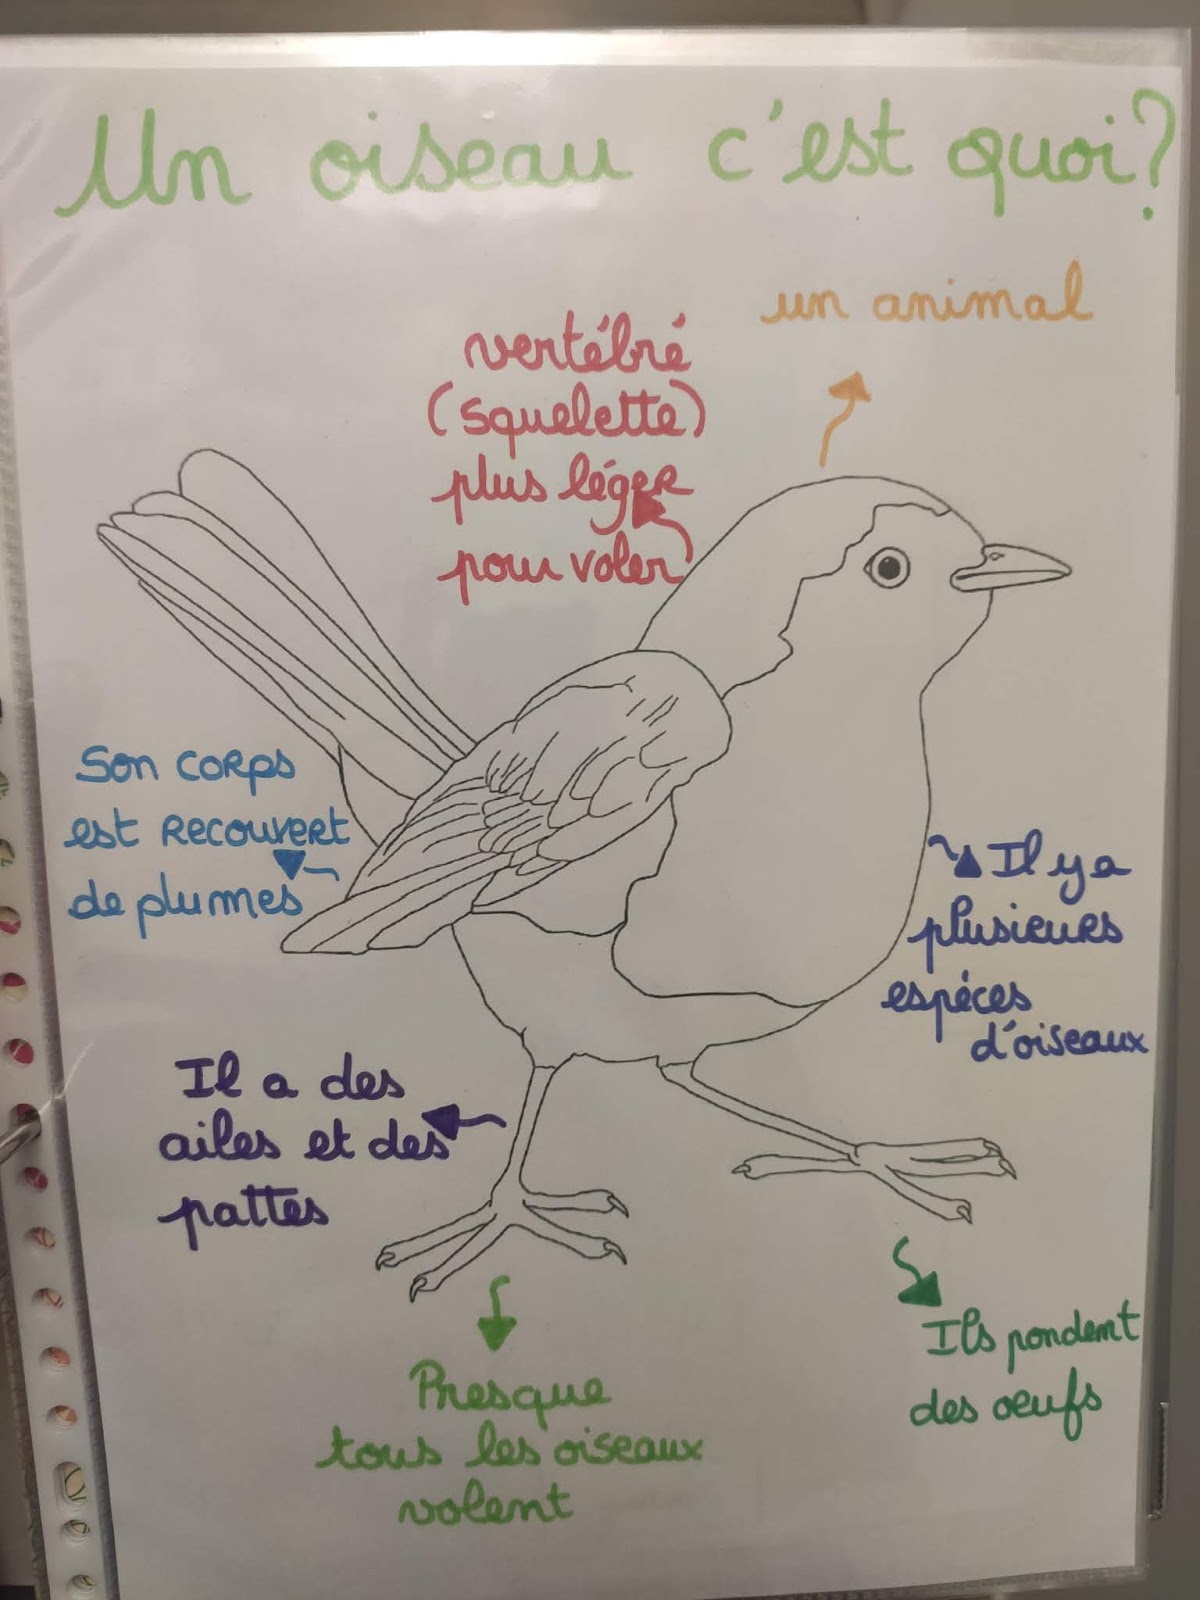 Un oiseau c'est quoi?
un animal
vertébré
(squelette)
plus léger
pour voler
Son corps
est recouvert
de plumes
Il y a
plusieurs
espèces
d'oiseaux
Il a des
ailes et des
pattes
Ils pondent
des oeufs
Presque
tous les oiseaux
volent